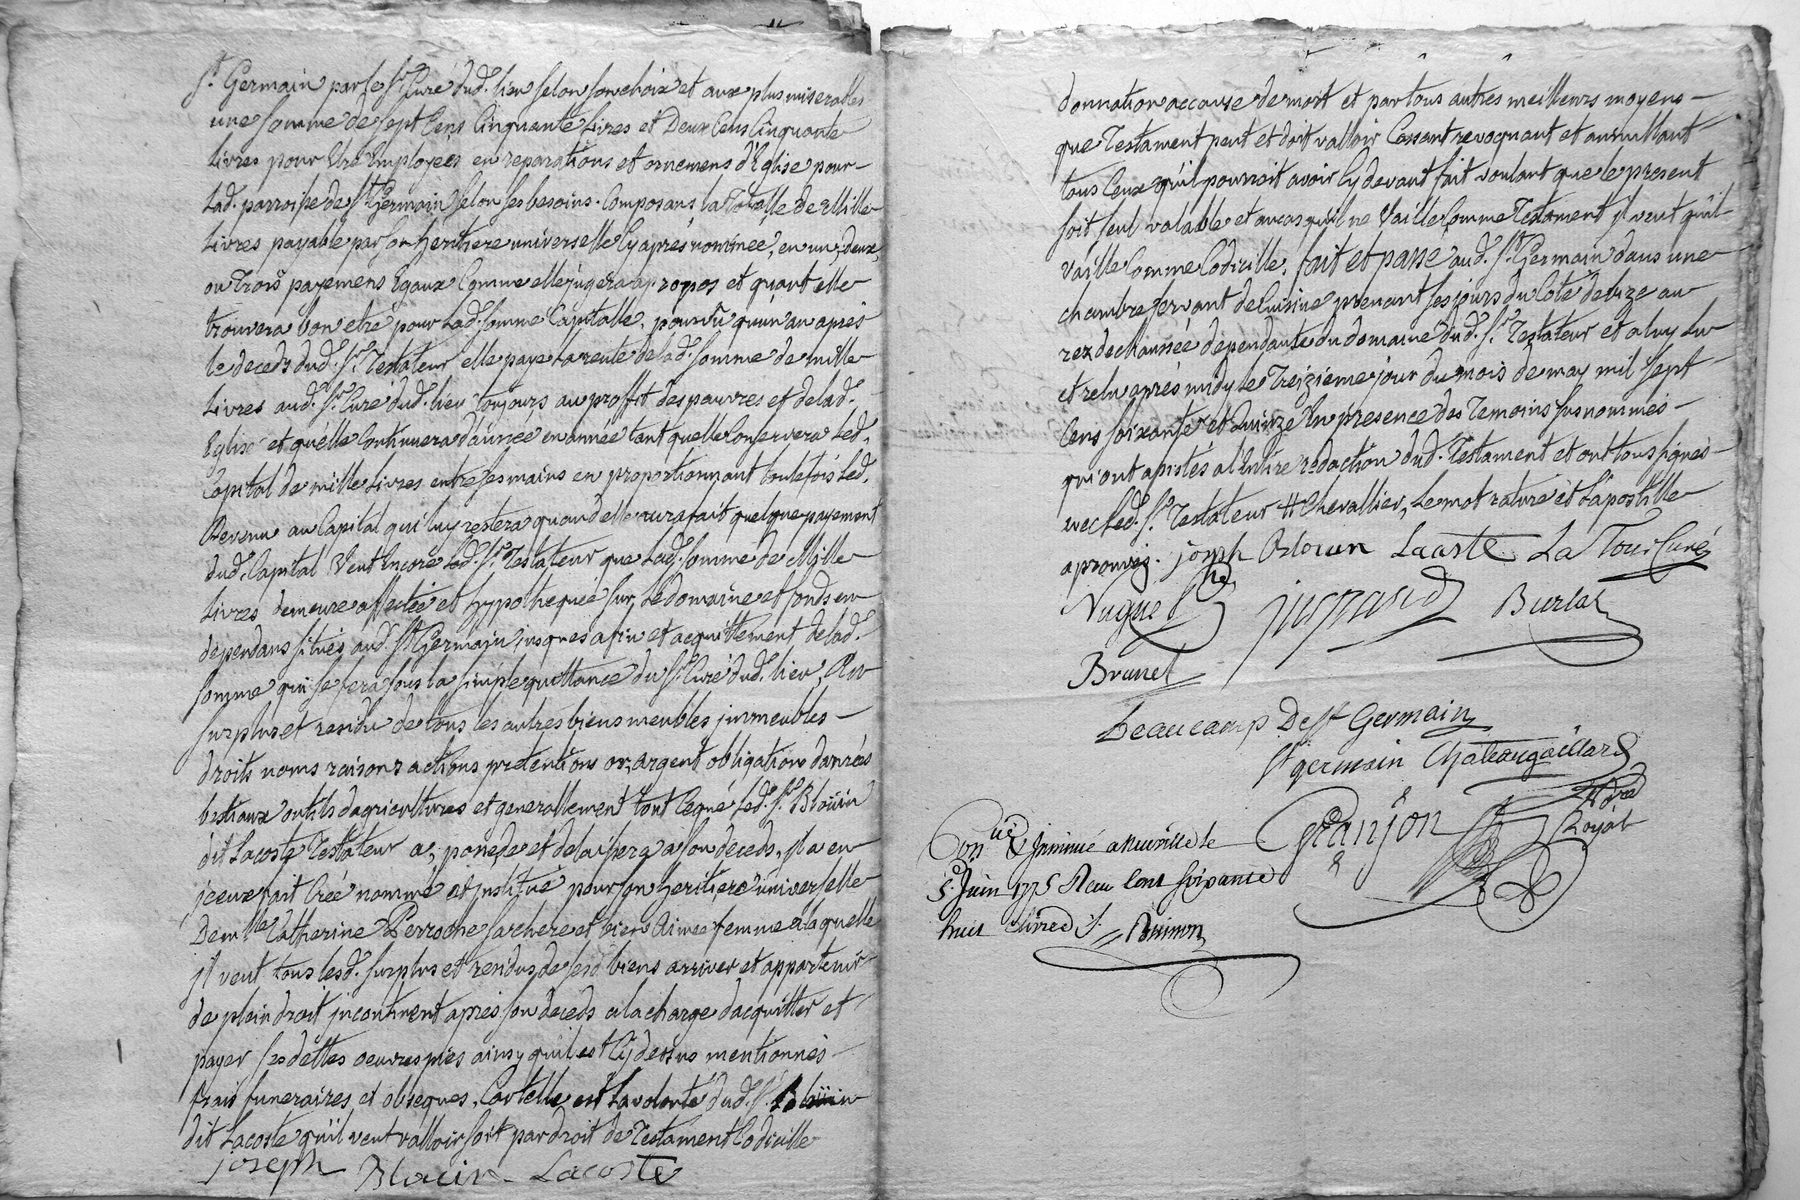 St. Germain par le Sr. Curé dud. lieu selon son choix et aux plus miserables
une somme de sept Cens Cinquante Livres et Deux Cens Cinquante
Livres pour Etre Employées en reparations et ornemens d'Eglise pour
Lad. parroisse de St. Germain selon ses besoins. Composans la Totalle de Mille
Livres payable par son heritiere universelle Cy aprés nommée, en un, deux,
ou Trois payemens Egaux Comme elle jugera apropos et quant elle
trouvera bon etre pour Lad. somme Capitalle, pourvû qu'un an aprés
le deceds dud. Sr. Testateur elle paye la rente de lad. somme de mille
Livres aud. Sr. Curé dud. lieu toujours au proffit des pauvres et de lad.
Eglise et qu'elle Continuera d'année en année tant quelle Conservera Led.
Capital de mille Livres entre ses mains en proportionnant toutefois Led.
Revenu au Capital qui luy restera quand elle aura fait quelque payement
dud. Capital Veut Encore Led. Sr. Testateur que Lad. somme de Mille
Livres demeure affectée et hypothequée sur Le domaine et fonds en
dependans situés aud. St. Germain jusques a fin et acquittement de lad.
somme qui se fera sous la simple quittance du Sr. Curé dud. lieu, Au
surplus et residu de tous les autres biens meubles jmmeubles
droits noms raisons actions pretentions or, argent obligations danrées
bestiaux outils dagricultures et generallement tout Ceque Led. Sr. Bloüin
dit Lacoste Testateur a, possede et delaissera a son deceds, jl a en
jceux fait Créé nommé et jnstitué pour son heritiere universelle
Demlle Catherine Perroche sa chere et bien Aimée femme a laquelle
jl veut tous lesd. surplus et rendus de sesd. biens arriver et appartenir
de plein droit jncontinent aprés son deceds a la charge dacquitter et
payer ses dettes oeuvres pies ainsy quil est Cy dessus mentionnés
frais funeraires et obseques, Car telle est La volonté dud. Sr. Bloüin
dit Lacoste qu'il veut valloir soit par droit de Testament Codicille
joseph Blouin Lacoste
donnation accause de mort et par tous autres meilleurs moyens
que Testament peut et doit valloir Cassant revoquant et annullant
tous Ceux qu'il pourroit avoir Cy devant fait voulant que le present
soit seul valable et aucas quil ne Vaille Comme Testament jl veut quil
Vaille Comme Codicille, fait et passé aud. St. Germain dans une
chambre servant de Cuisine prenant ses jours du Coté de bize au
rez de chaussée dépendante du domaine dud. Sr. Testateur et a luy Lu
et relu aprés midy le Treizieme jour du mois de may mil sept
Cens soixante et Quinze En présence des Temoins susnommés
qui ont assistés a l'Entire redaction dud. Testament et ont tous signés
avec Led. Sr. Testateur # Chevallier, Le mot raturé et l'apostille
aprouvés. joseph Blouin Lacoste La Tour Curé
Brunet
Beaucamp De St Germain
St germain Chateaugaillard
Granjon
Royal
Conlle & Jnsinué a Neuville le
5 Juin 1775 Recu Cent soixante
huit Livres